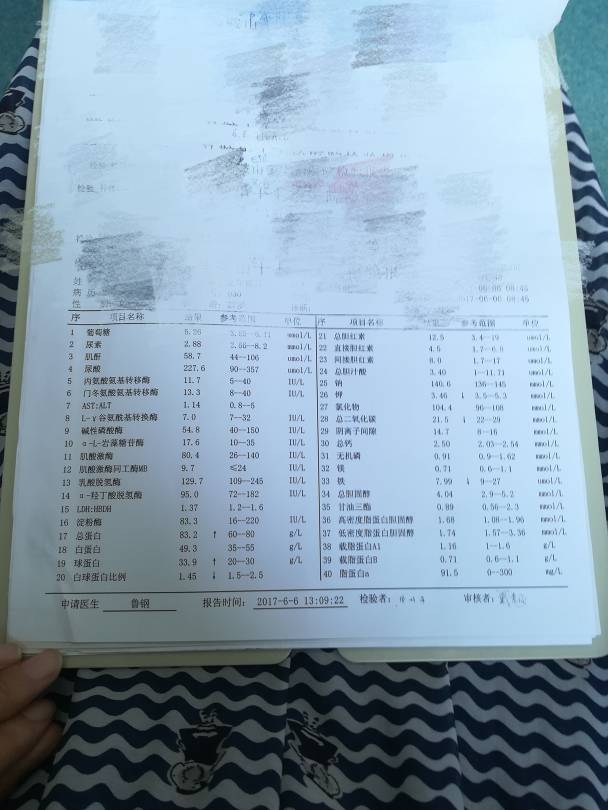 序 项目名称 结果 参考范围 单位 序 项目名称 结果 参考范围 单位
1 葡萄糖 5.26 mmol/L 21 总胆红素 12.5 3.4--19 umol/L
2 尿素 2.88 2.56--8.2 mmol/L 22 直接胆红素 4.5 1.7--6.8 umol/L
3 肌酐 58.7 44--106 umol/L 23 间接胆红素 8.0 1.7--17 umol/L
4 尿酸 227.6 90--357 umol/L 24 总胆汁酸 3.40 1--11.71 umol/L
5 丙氨酸氨基转移酶 11.7 5--40 IU/L 25 钠 140.6 136--145 mmol/L
6 门冬氨酸氨基转移酶 13.3 8--40 IU/L 26 钾 3.46 ↓ 3.5--5.3 mmol/L
7 AST:ALT 1.14 0.8--5 27 氯化物 104.4 96--108 mmol/L
8 L-γ谷氨酰基转换酶 7.0 7--32 IU/L 28 总二氧化碳 21.5 ↓ 22--29 mmol/L
9 碱性磷酸酶 54.8 40--150 IU/L 29 阴离子间隙 14.7 8--16 mmol/L
10 α-L-岩藻糖苷酶 17.6 10--35 IU/L 30 总钙 2.50 2.03--2.54 mmol/L
11 肌酸激酶 80.4 26--140 IU/L 31 无机磷 0.91 0.9--1.62 mmol/L
12 肌酸激酶同工酶MB 9.7 ≤24 IU/L 32 镁 0.71 0.6--1.1 mmol/L
13 乳酸脱氢酶 129.7 109--245 IU/L 33 铁 7.99 ↓ 9--27 umol/L
14 α-羟丁酸脱氢酶 95.0 72--182 IU/L 34 总胆固醇 4.04 2.9--5.2 mmol/L
15 LDH:HBDH 1.37 1.2--1.6 35 甘油三酯 0.89 0.56--2.3 mmol/L
16 淀粉酶 83.3 16--220 IU/L 36 高密度脂蛋白胆固醇 1.68 1.08--1.96 mmol/L
17 总蛋白 83.2 ↑ 60--80 g/L 37 低密度脂蛋白胆固醇 1.74 1.57--3.36 mmol/L
18 白蛋白 49.3 35--55 g/L 38 载脂蛋白A1 1.16 1--1.6 g/L
19 球蛋白 33.9 ↑ 20--30 g/L 39 载脂蛋白B 0.71 0.6--1.1 g/L
20 白球蛋白比例 1.45 ↓ 1.5--2.5 40 脂蛋白a 91.5 0--300 mg/L
申请医生 鲁钢 报告时间: 2017-6-6 13:09:22 检验者: 审核者: